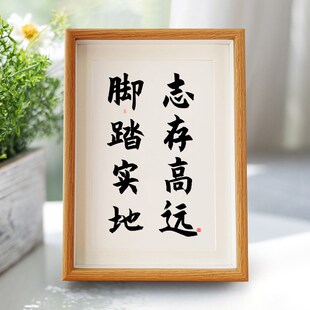 志存高远
脚踏实地